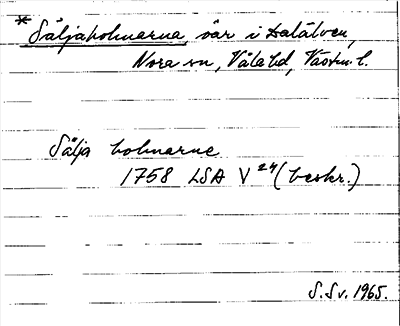 *Säljaholmarna, öar i Dalälven,
Nora sn, Våla hd, Västm. l.
Sälja holmarne
1758 LSA V 24 (beskr.)
S. Sv. 1965.